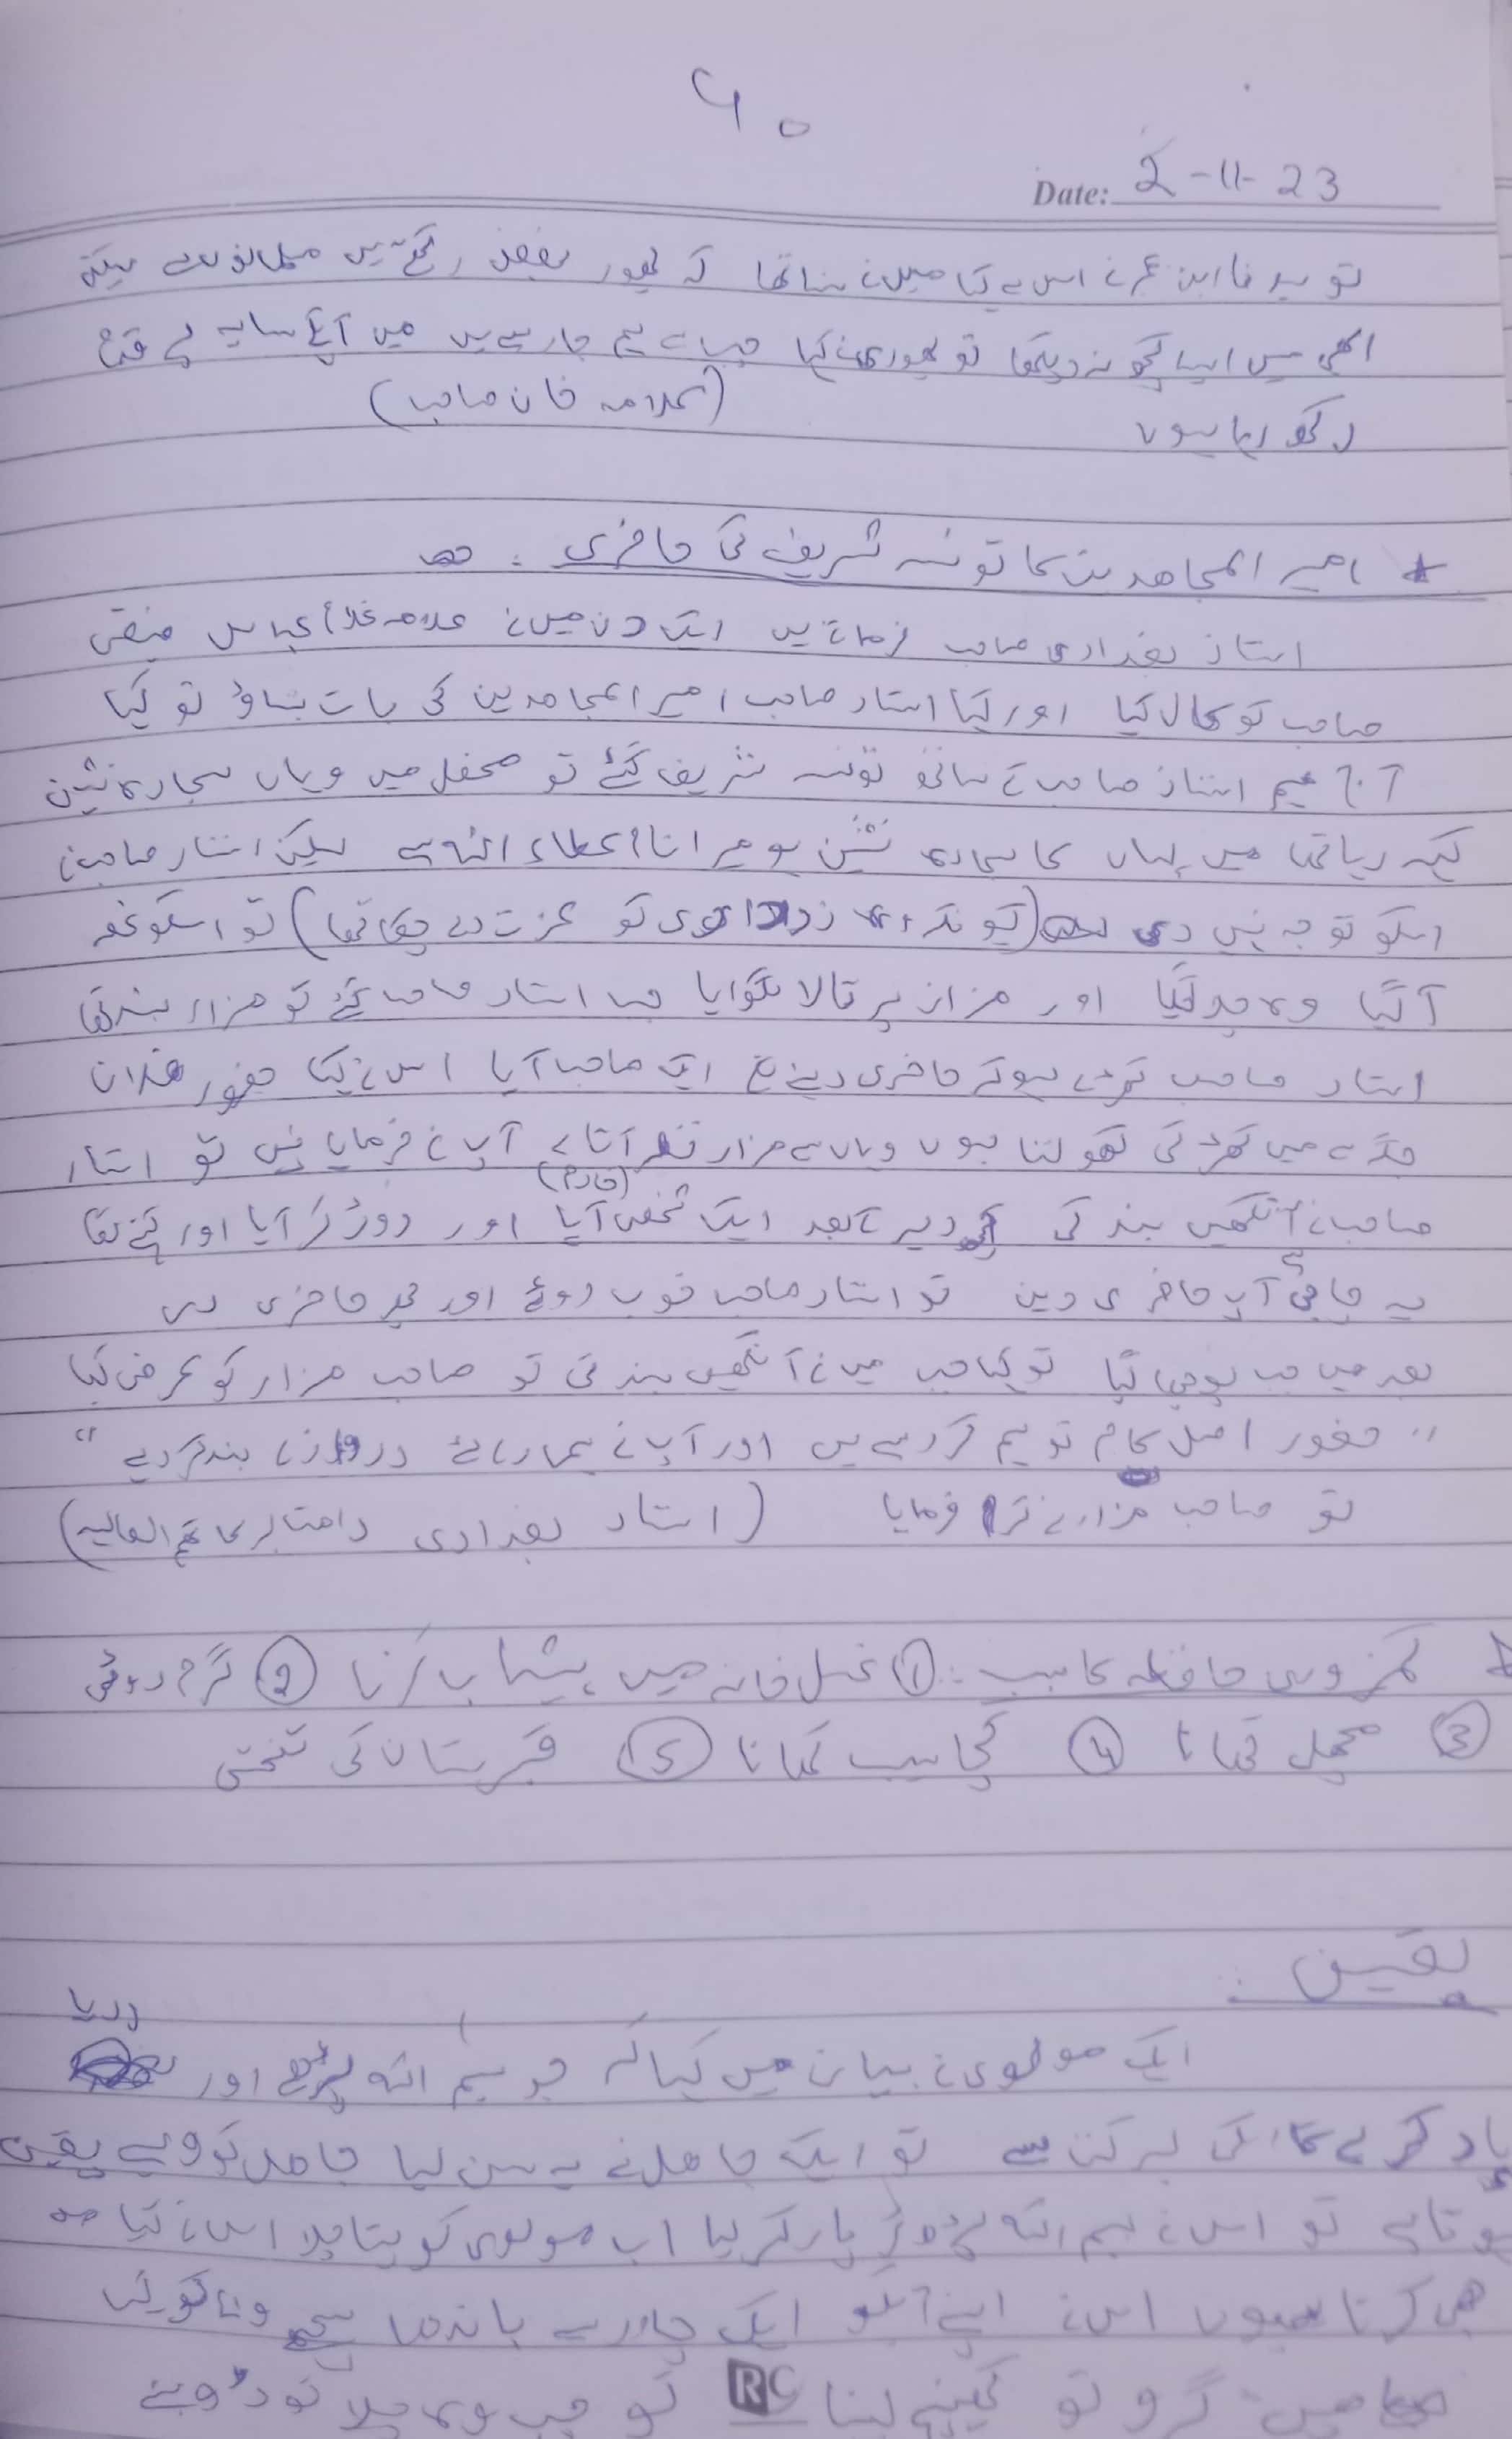 ۶۰
Date: 2-11-23
تو سیدنا ابن عمر نے اس سے کہا میں نے سنا تھا کہ یہود بغض رکھتے ہیں مسلمانوں سے لیکن
ابھی میں ایسا کچھ نہ دیکھا تو یہودی نے کہا جب سے ہم جا رہے ہیں میں آپکے سایہ پے قدم
رکھ رہا ہوں (علامہ خان صاحب)
* امیر المجاھدین کا تونسہ شریف کی حاضری :
استاذ بغدادی صاحب فرماتے ہیں ایک دن میں نے علامہ غلام عباس فیضی
صاحب کو کال کیا اور کہا استاد صاحب امیر المجاھدین کی بات بتاؤ تو کہا
آج ہم استاذ صاحب کے ساتھ تونسہ شریف گئے تو محفل میں وہاں سجادہ نشین
کہہ رہا تھا میں یہاں کا سجادہ نشین ہو میرا نام عطاء اللہ ہے لیکن استاد صاحب نے
اسکو توجہ نہیں دی (کیونکہ وہ زرداری کو عزت دے چکا تھا) تو اسکو غصہ
آگیا وہ چلا گیا اور مزار پر تالا لگوایا جب استاد صاحب گئے تو مزار بند تھا
استاد صاحب کھڑے ہوکر حاضری دینے لگے ایک صاحب آیا اس نے کہا حضور فلان
جگہ سے میں کھڑکی کھولتا ہوں وہاں سے مزار نظر آتا ہے آپ نے فرمایا نہیں تو استاد
صاحب نے آنکھیں بند کی کچھ دیر کے بعد ایک شخص (خادم) آیا اور دوڑ کر آیا اور کہنے لگا
یہ چابی آپ حاضری دیں تو استاد صاحب خوب روئے اور پھر حاضری دی
بعد میں جب پوچھا گیا تو کہا جب میں نے آنکھیں بند کی تو صاحب مزار کو عرض کیا
"حضور اصل کام تو ہم کر رہے ہیں اور آپ نے ہمارے لئے دروازے بند کر دیے"
تو صاحب مزار نے کرم فرمایا (استاد بغدادی دامت برکاتہم العالیہ)
* کمزوری حافظہ کا سبب : ① غسل خانہ میں پیشاب کرنا ② گرم روٹی
③ مچھلی کھانا ④ کچا سیب کھانا ⑤ قبرستان کی تختی
یقین :
ایک مولوی نے بیان میں کہا کہ جو بسم اللہ پڑھے اور دریا
پار کرے گا اسکی برکت سے تو ایک جاھل نے یہ سن لیا جاھل کو ویسے یقین
ہوتا ہے تو اس نے بسم اللہ پڑھ کر پار کر لیا اب مولوی کو پتا چلا اس نے کہا
میں بھی کرتا ہوں اس نے اپنے آپکو ایک چادر سے باندھا
میں گرو تو کھینچ لینا تو جب وہ چلا تو ڈوبنے